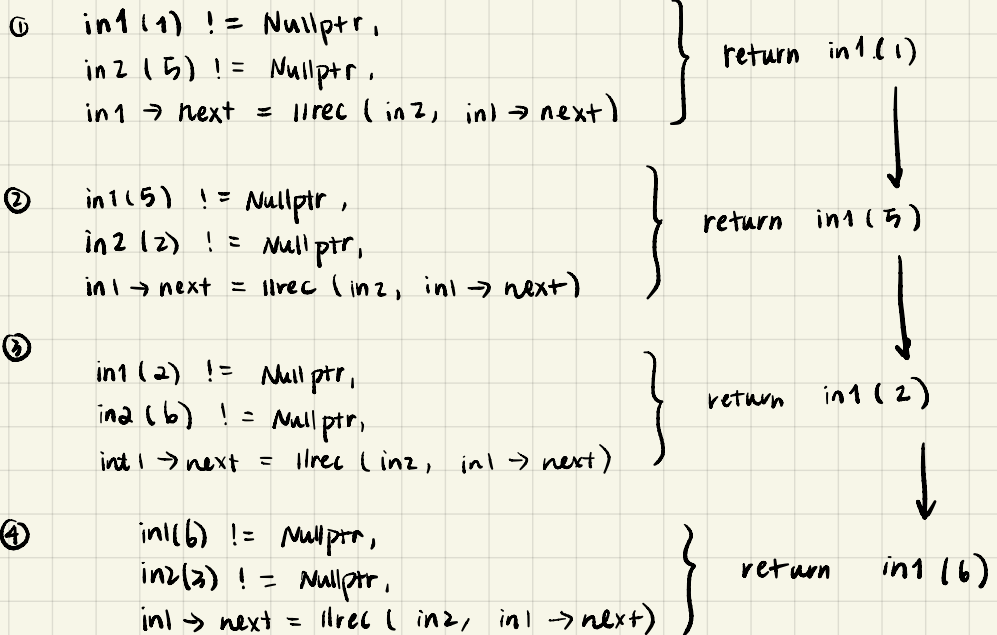 ① in1(1) != Nullptr,
in2(5) != Nullptr,
in1 → next = llrec(in2, in1 → next)
return in1(1)
② in1(5) != Nullptr,
in2(2) != Nullptr,
in1 → next = llrec(in2, in1 → next)
return in1(5)
③
in1(2) != Nullptr,
in2(6) != Nullptr,
int1 → next = llrec(in2, in1 → next)
return in1(2)
④ in1(6) != Nullptr,
in2(3) != Nullptr,
in1 → next = llrec(in2, in1 → next)
return in1(6)